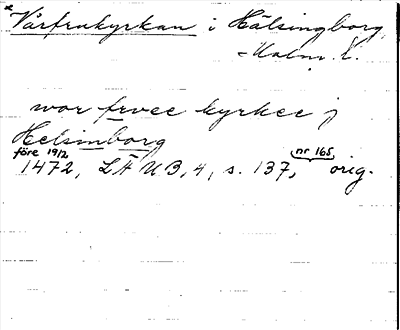 * Vårfrukyrkan i Hälsingborg
- Malm. l.
wor frvee kyrkee j
Helsinborg
före 19/2
1472, LÄUB, 4, s. 137, nr 165, orig.